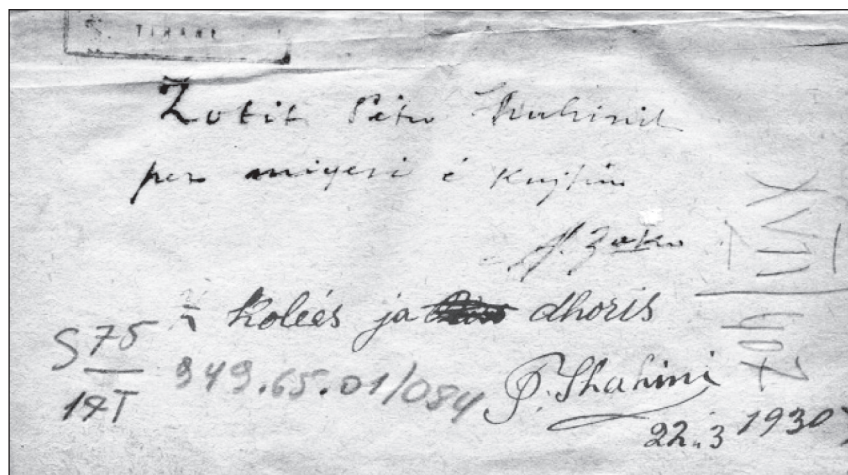 TIRANË
Zotit Petro Shahinit
per miqesi é kujtim
Zako
Koleés ja dhoris
S 75
14T
949.65.01/084
P. Shahini
22.3 1930